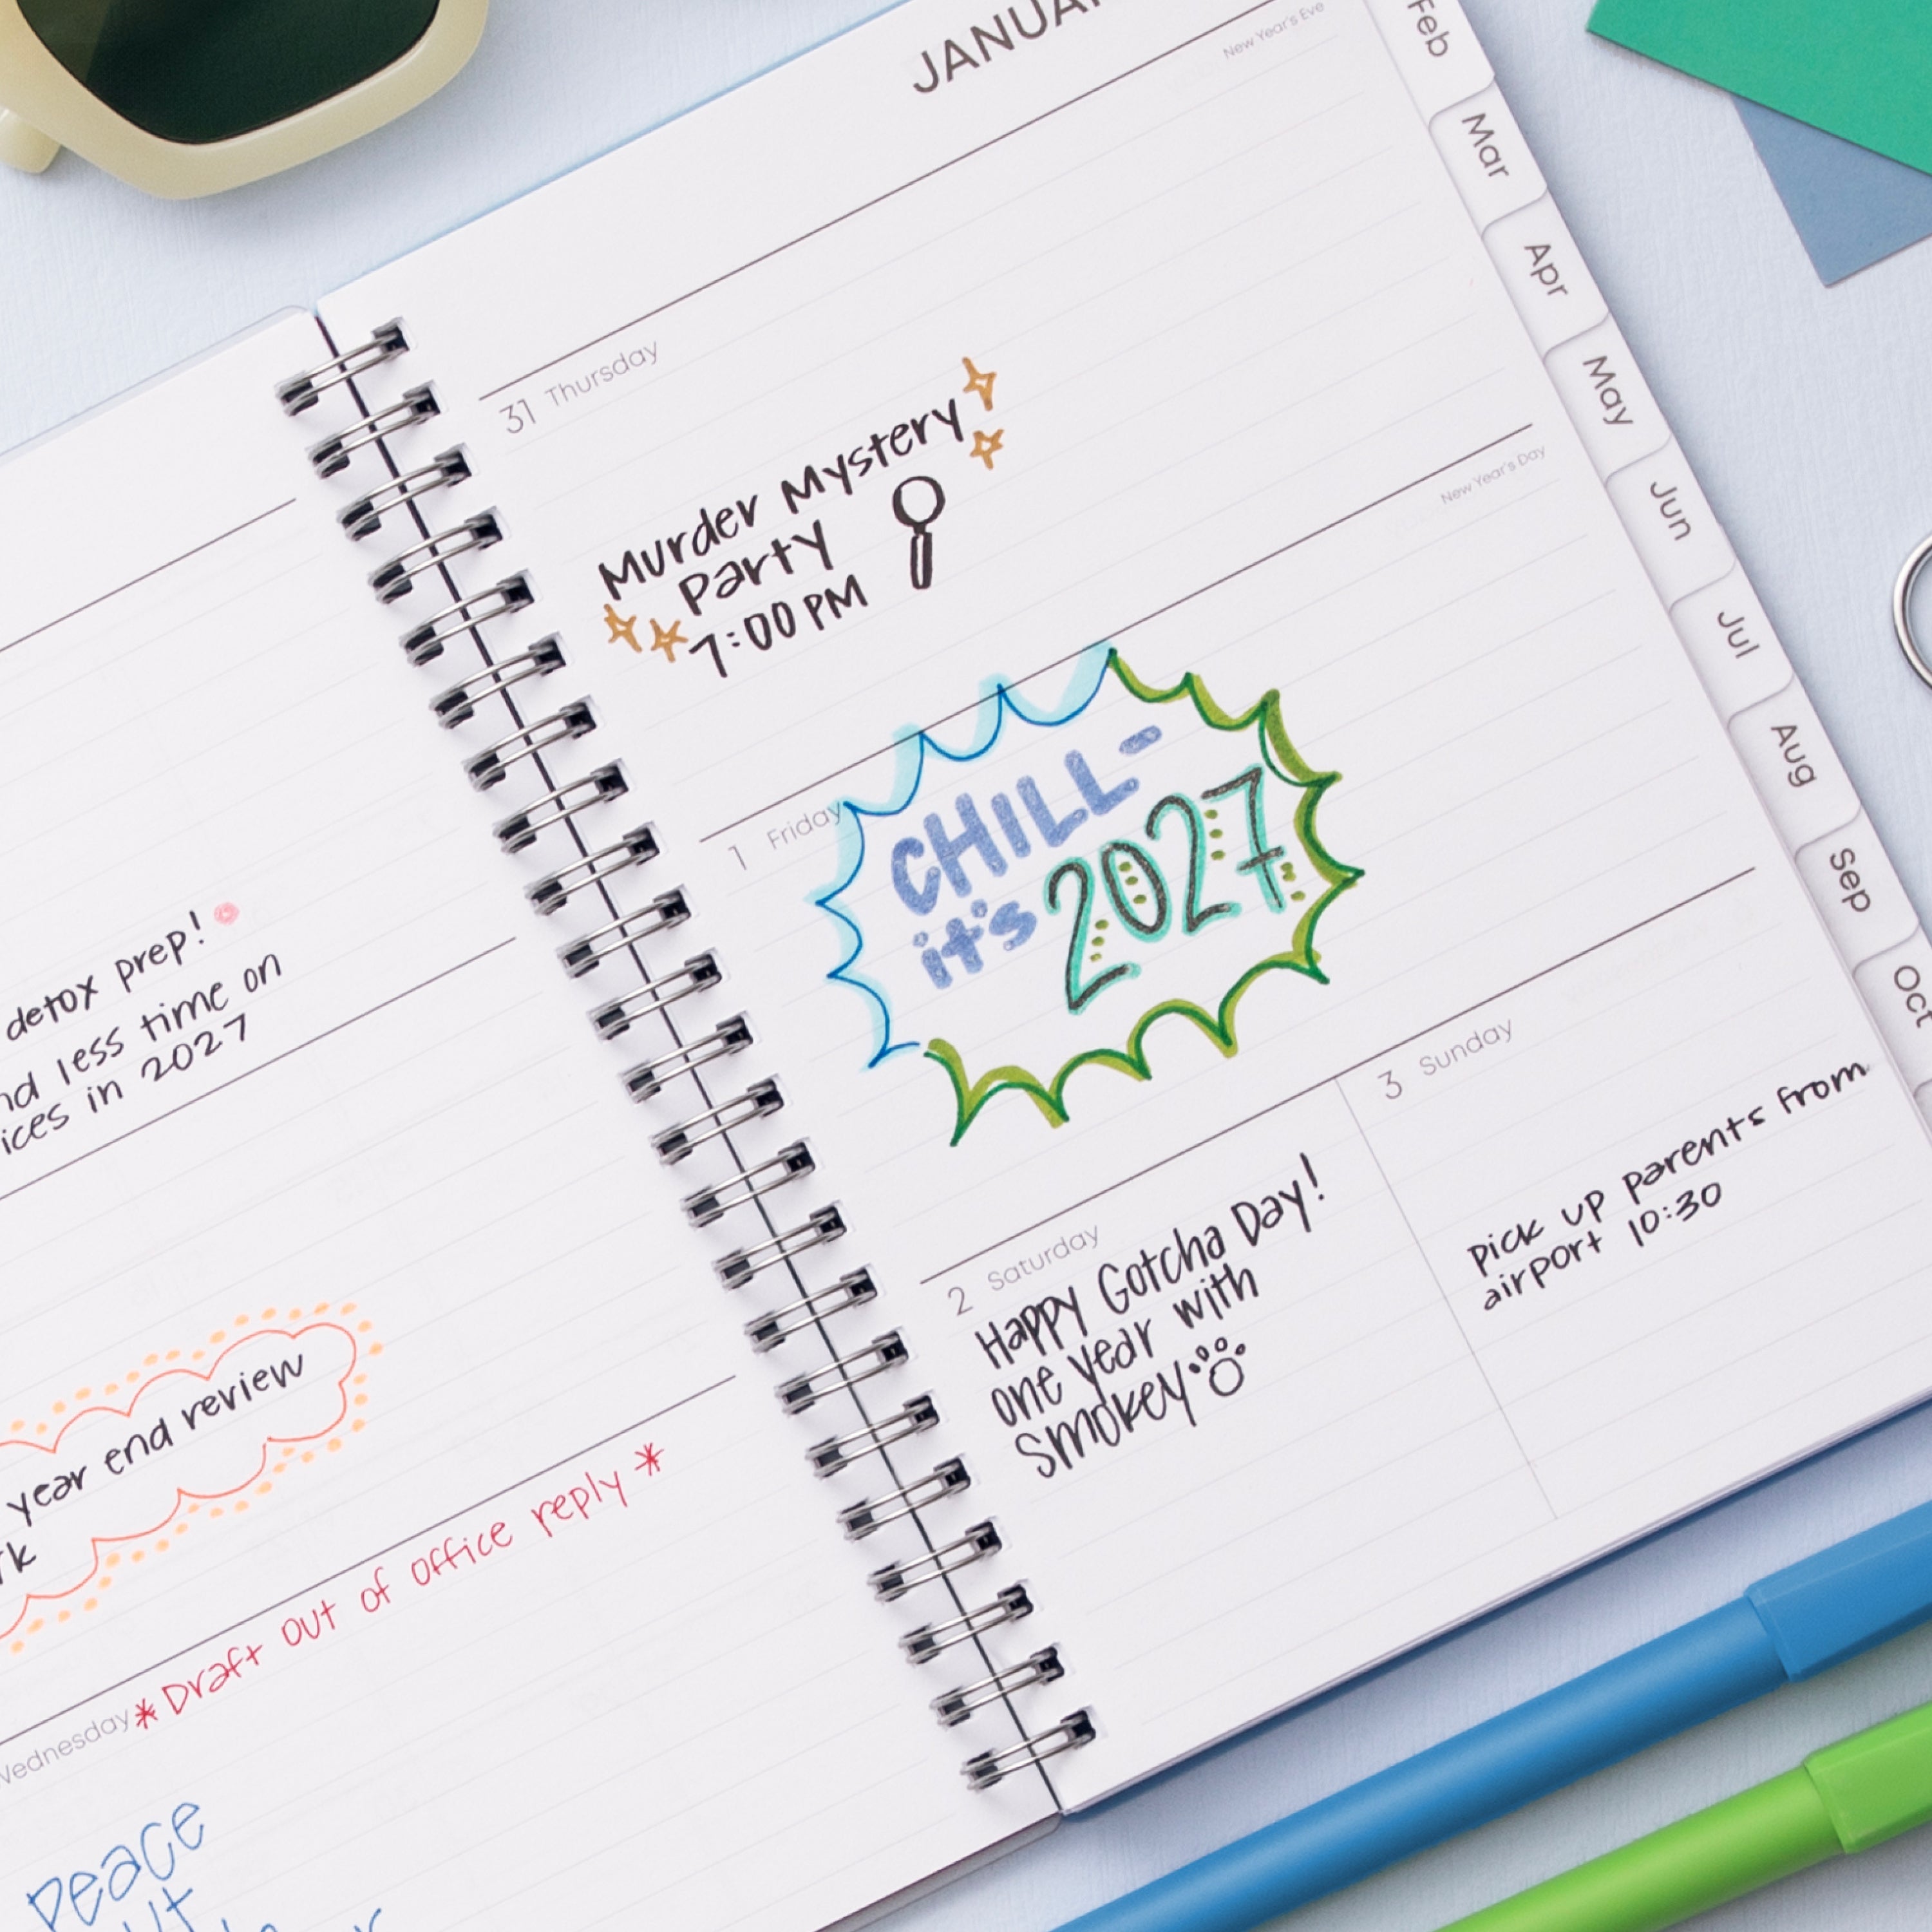 detox prep!
less time on
in 2027
year end review
*Draft out of office reply*
Peace
JANUA
New Year's Eve
31 Thursday
Murder Mystery
Party
7:00 PM
New Year's Day
1 Friday
CHILL-
it's 2027
2 Saturday
Happy Gotcha Day!
one year with
Smokey
3 Sunday
pick up parents from
airport 10:30
Feb
Mar
Apr
May
Jun
Jul
Aug
Sep
Oct